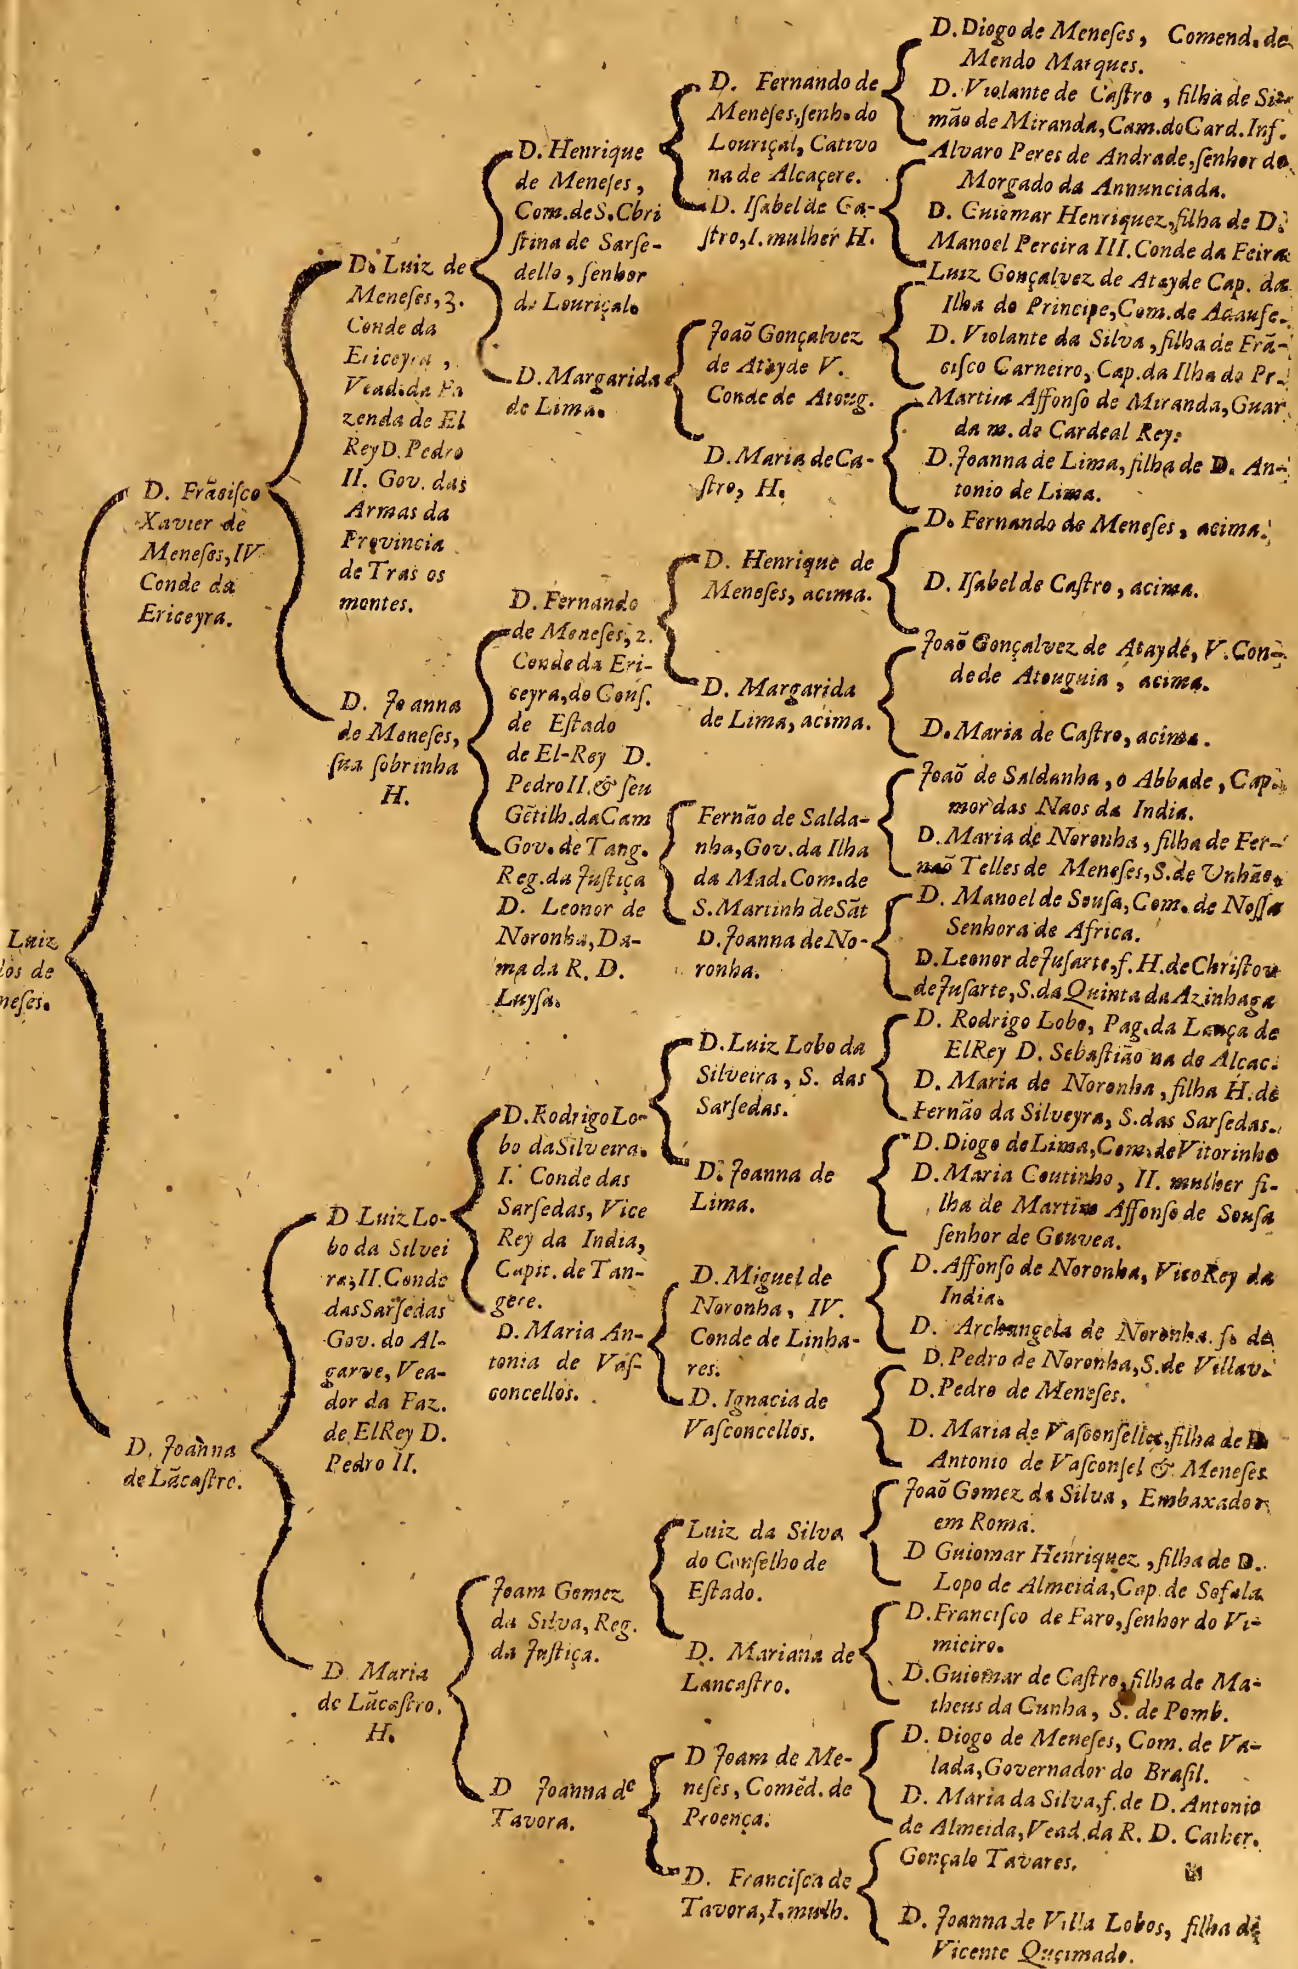 Luiz
los de
neſes.
D. Frãciſco
Xavier de
Meneſes, IV
Conde da
Ericeyra.
D. Joanna
de Lãcaſtro.
D. Luiz de
Meneſes, 3.
Conde da
Ericeyra,
Vead. da Fa
zenda de El
Rey D. Pedro
II. Gov. das
Armas da
Provincia
de Tras os
montes.
D. Joanna
de Meneſes,
ſua ſobrinha
H.
D Luiz Lo-
bo da Silvei
ra, II. Conde
das Sarſedas
Gov. do Al-
garve, Vea-
dor da Faz.
de ElRey D.
Pedro II.
D. Maria
de Lãcaſtro.
H.
D. Henrique
de Meneſes,
Com. de S. Chri
ſtina de Sarſe-
dello, ſenhor
do Louriçal.
D. Margarida
de Lima.
D. Fernando
de Meneſes, 2.
Conde da Eri-
ceyra, do Conſ.
de Eſtado
de El-Rey D.
Pedro II. & ſeu
Gẽtilh. da Cam
Gov. de Tang.
Reg. da Juſtiça
D. Leonor de
Noronha, Da-
ma da R. D.
Luyſa.
D. Rodrigo Lo-
bo da Silveira.
I. Conde das
Sarſedas, Vice
Rey da India,
Capit. de Tan-
gere.
D. Maria An-
tonia de Vaſ-
concellos.
Joam Gomez
da Silva, Reg.
da Juſtiça.
D Joanna de
Tavora.
D. Fernando de
Meneſes, ſenh. do
Louriçal, Cativo
na de Alcaçere.
D. Iſabel de Ca-
ſtro, I. mulher H.
Joaõ Gonçalvez
de Atayde V.
Conde de Atoug.
D. Maria de Ca-
ſtro, H.
D. Henrique de
Meneſes, acima.
D. Margarida
de Lima, acima.
Fernão de Salda-
nha, Gov. da Ilha
da Mad. Com. de
S. Martinh de Sãt
D. Joanna de No-
ronha.
D. Luiz Lobo da
Silveira, S. das
Sarſedas.
D. Joanna de
Lima.
D. Miguel de
Noronha, IV.
Conde de Linha-
res.
D. Ignacia de
Vaſconcellos.
Luiz da Silva
do Conſelho de
Eſtado.
D. Mariana de
Lancaſtro.
D Joam de Me-
neſes, Comẽd. de
Proença.
D. Franciſca de
Tavora, I. mulh.
D. Diogo de Meneſes, Comend. de
Mendo Marques.
D. Violante de Caſtro, filha de Si-
mão de Miranda, Cam. do Card. Inf.
Alvaro Peres de Andrade, ſenhor do
Morgado da Annunciada.
D. Guiomar Henriquez, filha de D.
Manoel Pereira III. Conde da Feira
Luiz Gonçalvez de Atayde Cap. da
Ilha do Principe, Com. de Adauſe.
D. Violante da Silva, filha de Frã-
ciſco Carneiro, Cap. da Ilha do Pr.
Martim Affonſo de Miranda, Guar
da m. do Cardeal Rey.
D. Joanna de Lima, filha de D. An-
tonio de Lima.
D. Fernando de Meneſes, acima.
D. Iſabel de Caſtro, acima.
Joaõ Gonçalvez de Atayde, V. Con-
de de Atouguia, acima.
D. Maria de Caſtro, acima.
Joaõ de Saldanha, o Abbade, Cap.
mor das Naos da India.
D. Maria de Noronha, filha de Fer-
naõ Telles de Meneſes, S. de Unhão.
D. Manoel de Souſa, Com. de Noſſa
Senhora de Africa.
D. Leonor de Juſarte, f. H. de Chriſtov
de Juſarte, S. da Quinta da Azinhaga
D. Rodrigo Lobo, Pag. da Lança de
ElRey D. Sebaſtião na de Alcac.
D. Maria de Noronha, filha H. de
Fernão da Silveyra, S. das Sarſedas.
D. Diogo de Lima, Com. de Vitorinho
D. Maria Coutinho, II. mulher fi-
lha de Martim Affonſo de Souſa
ſenhor de Gouvea.
D. Affonſo de Noronha, ViceRey da
India.
D. Archangela de Noronha. f. de
D. Pedro de Noronha, S. de Villav.
D. Pedro de Meneſes.
D. Maria de Vaſconſellos, filha de D
Antonio de Vaſconſel & Meneſes
Joaõ Gomez da Silva, Embaxador
em Roma.
D Guiomar Henriquez, filha de D.
Lopo de Almeida, Cap. de Sofala
D. Franciſco de Faro, ſenhor do Vi-
mieiro.
D. Guiomar de Caſtro, filha de Ma-
theus da Cunha, S. de Pomb.
D. Diogo de Meneſes, Com. de Va-
lada, Governador do Braſil.
D. Maria da Silva, f. de D. Antonio
de Almeida, Vead. da R. D. Cather.
Gonçalo Tavares.
D. Joanna de Villa Lobos, filha de
Vicente Queimado.